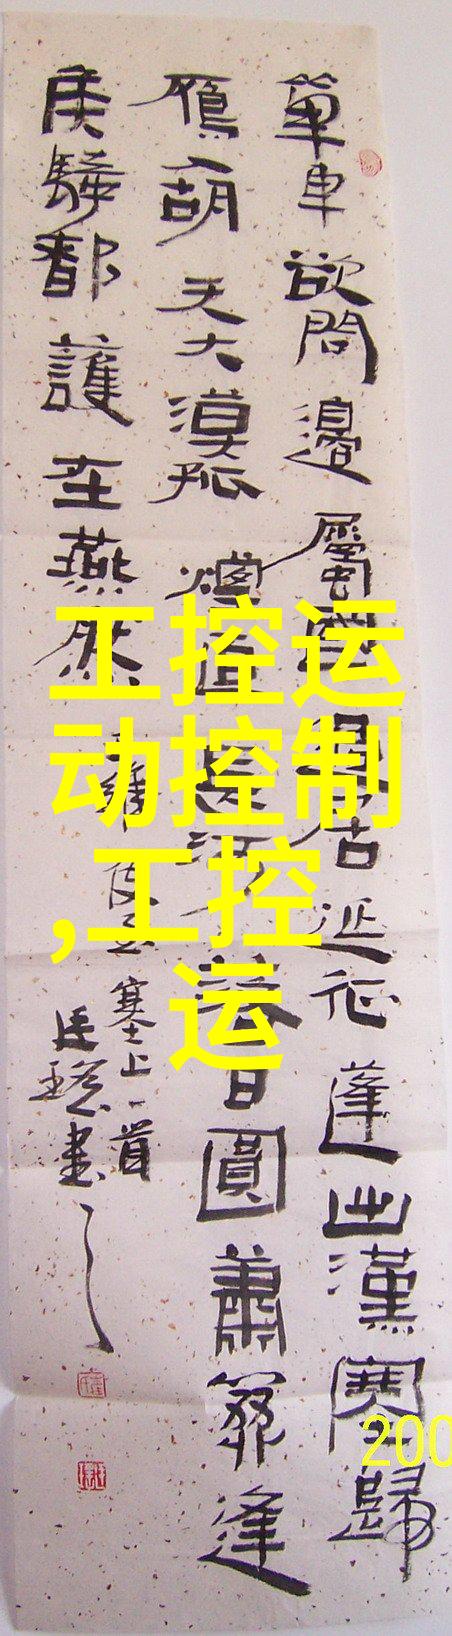 單車欲問邊屬國過居延征蓬出漢塞歸
鴈入胡天大漠孤煙直長河落日圓蕭關逢
侯騎都護在燕然
王維使至塞上一首
書
工控运
动控制
,工控
运
200